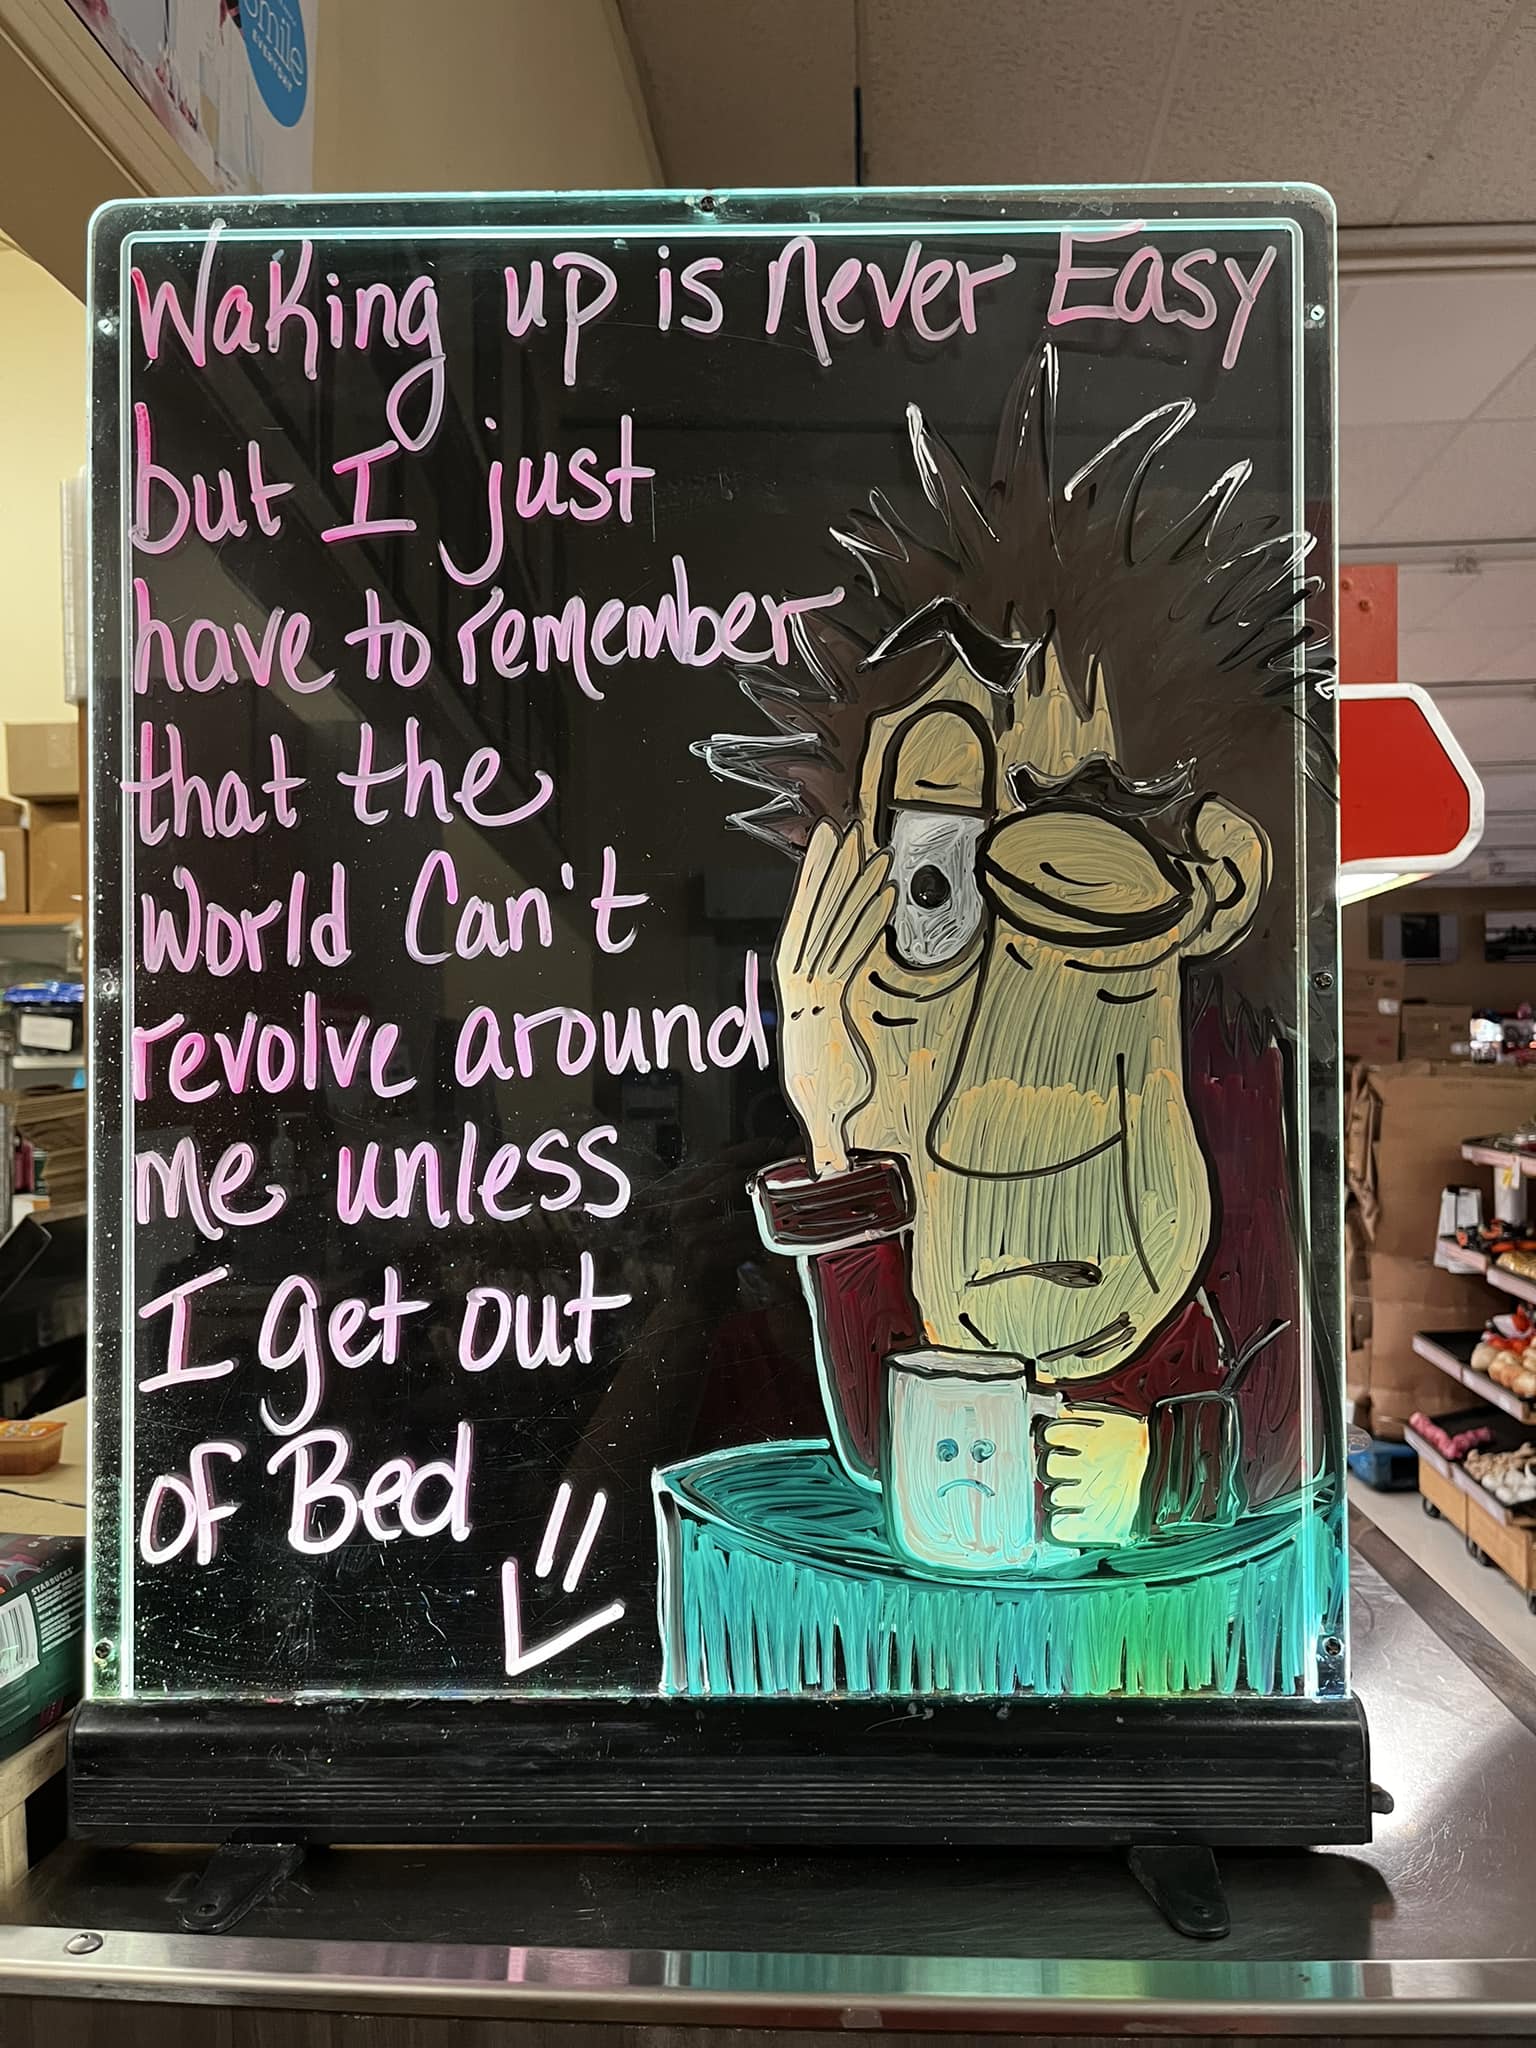 smile
EVERYDAY
Waking up is never Easy
but I just
have to remember
that the
World Can't
revolve around
me unless
I get out
of Bed
STARBUCKS